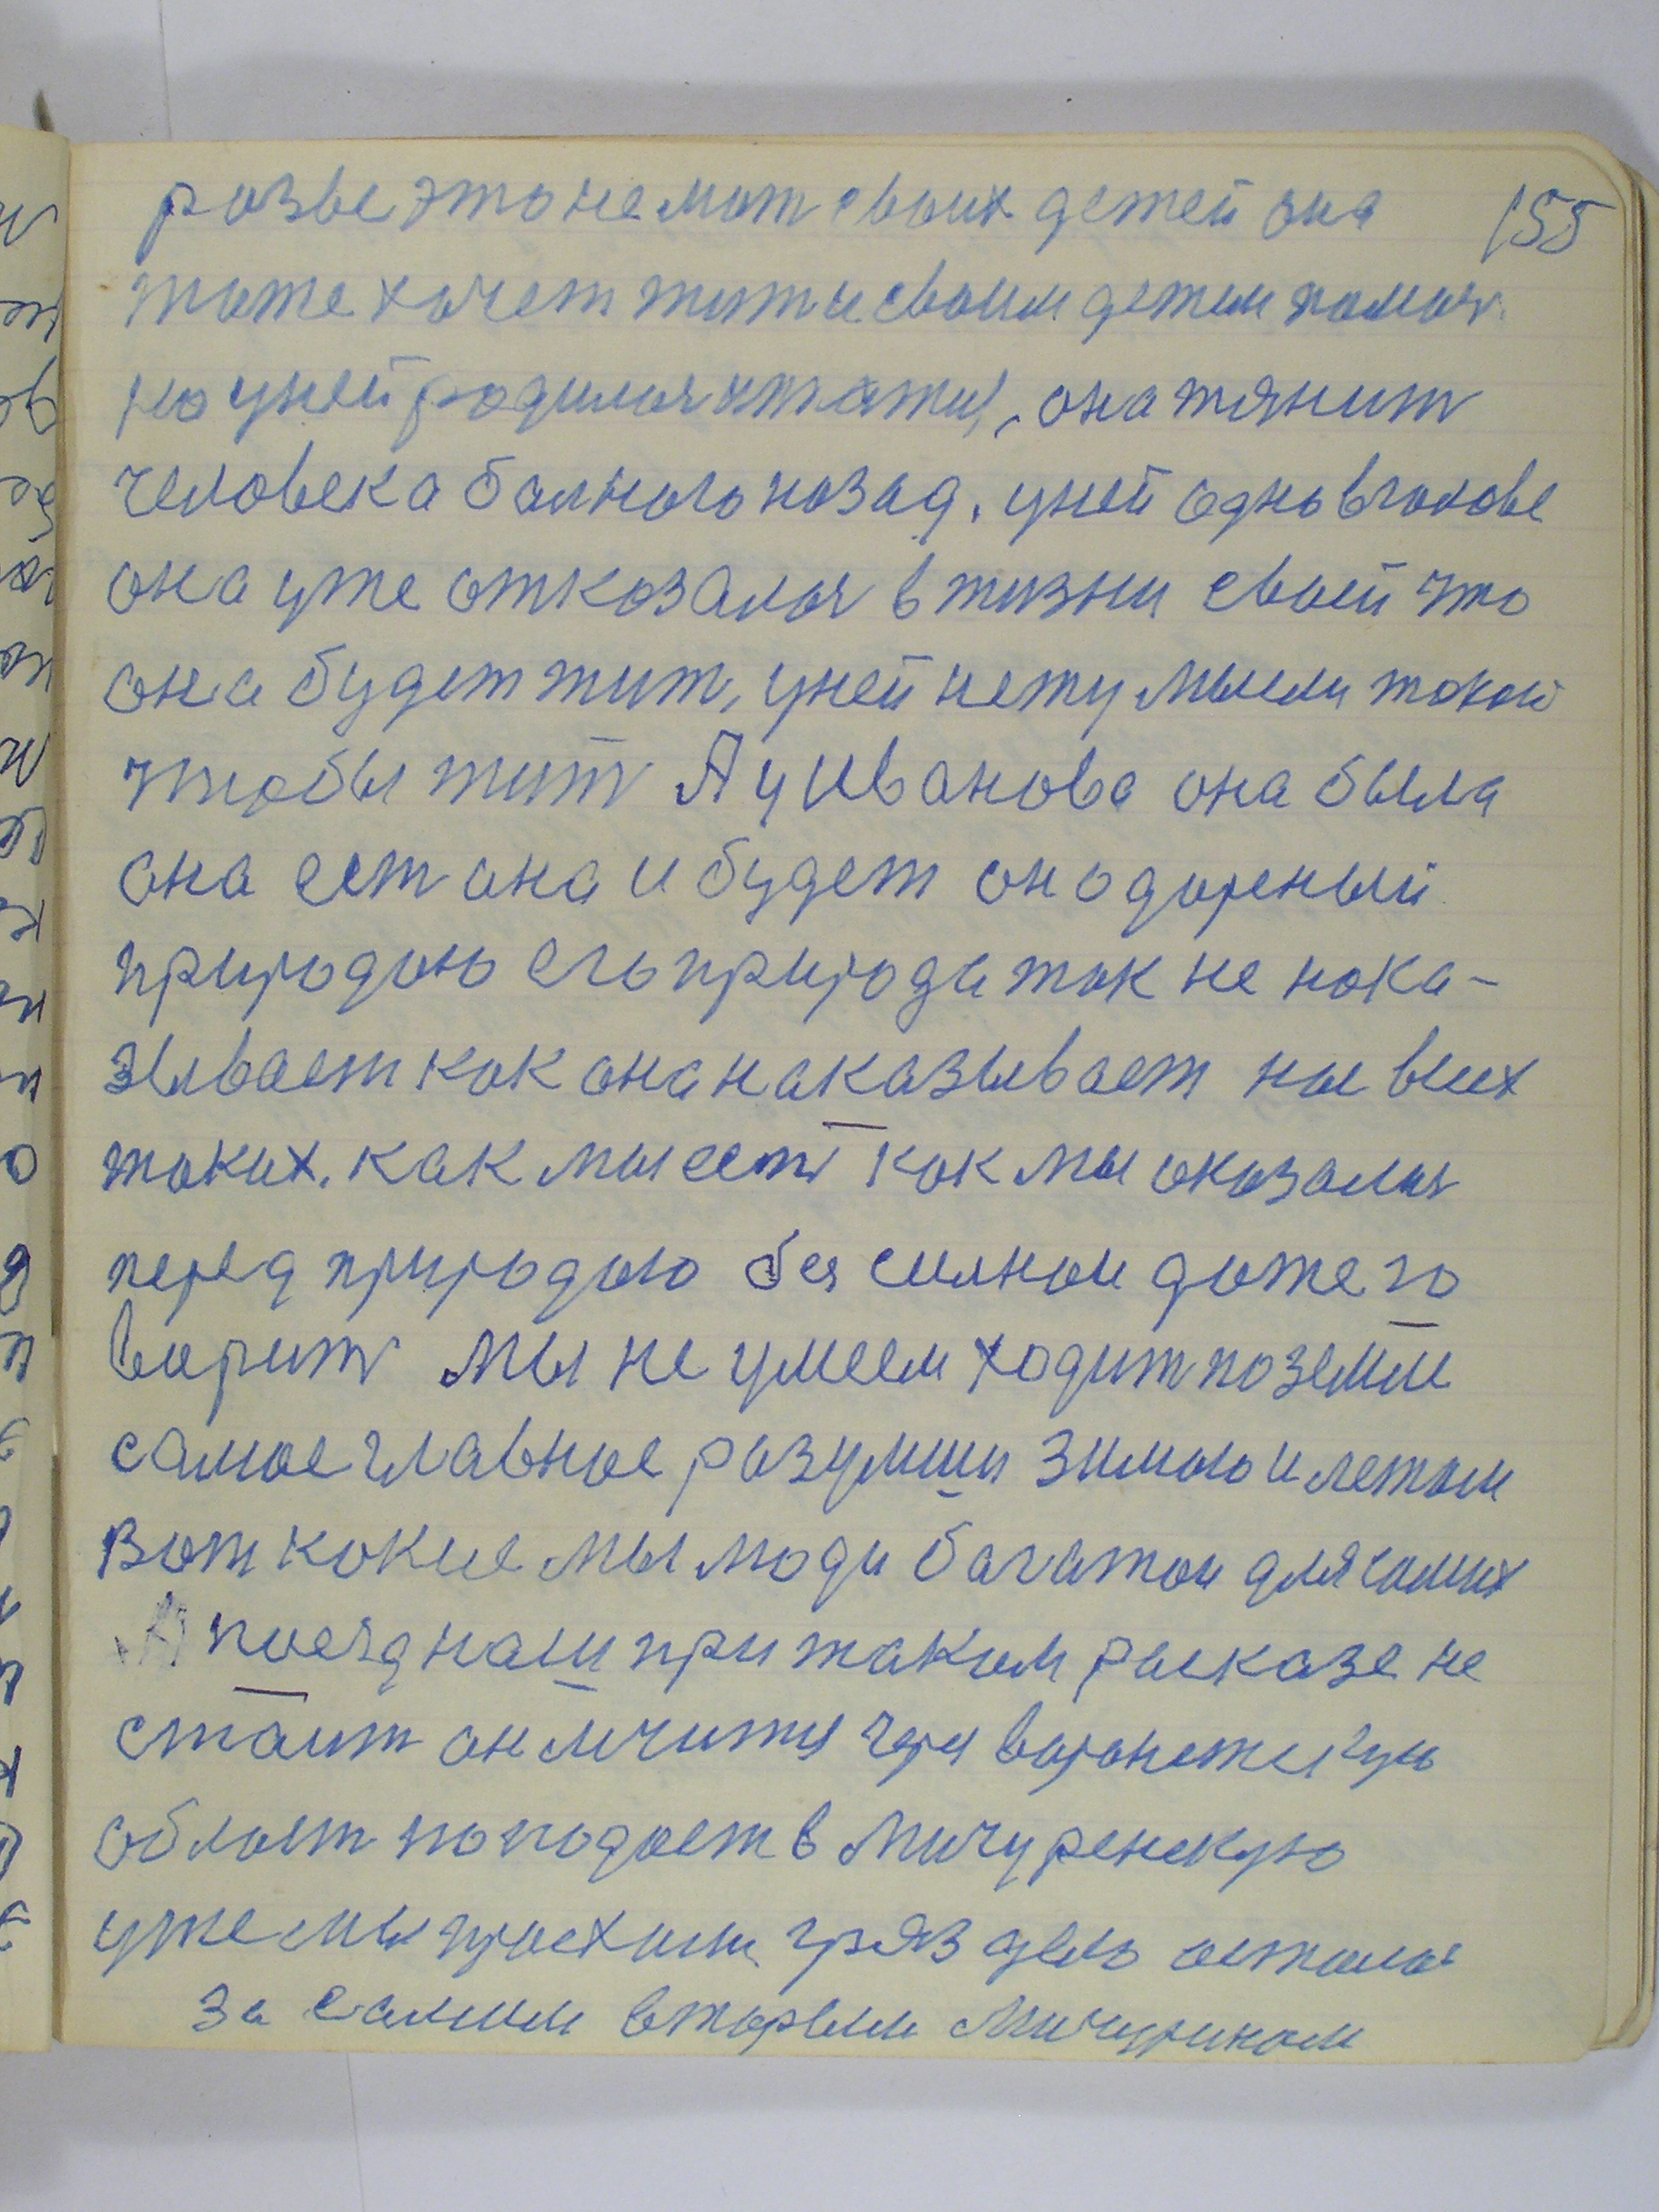 155
розве это не мат своих детей она
тоже хочет жит и своим детям помоч
но у ней родилася она тянит
человека болного назад. у ней одно в голове
она уже отказалас в жизни своей что
она будет жит, у ней нету мысли такой
чтобы жит А у Иванова она была
она ест она и будет он одареный
природою его природа так не нака-
зывает как она наказывает на всих
таких. как мы ест как мы оказалис
перед природою без силнои даже го
ворит мы не умеем ходит по земли
самое главное разумши зимою и летом
Вот какие мы люди багатои для самих
А поезд наш при таким расказе не
стоит он мчится через воронежскую
област поподает в Мичуренскую
уже мы проехали гряз дело осталос
за самим вторым Мичурином